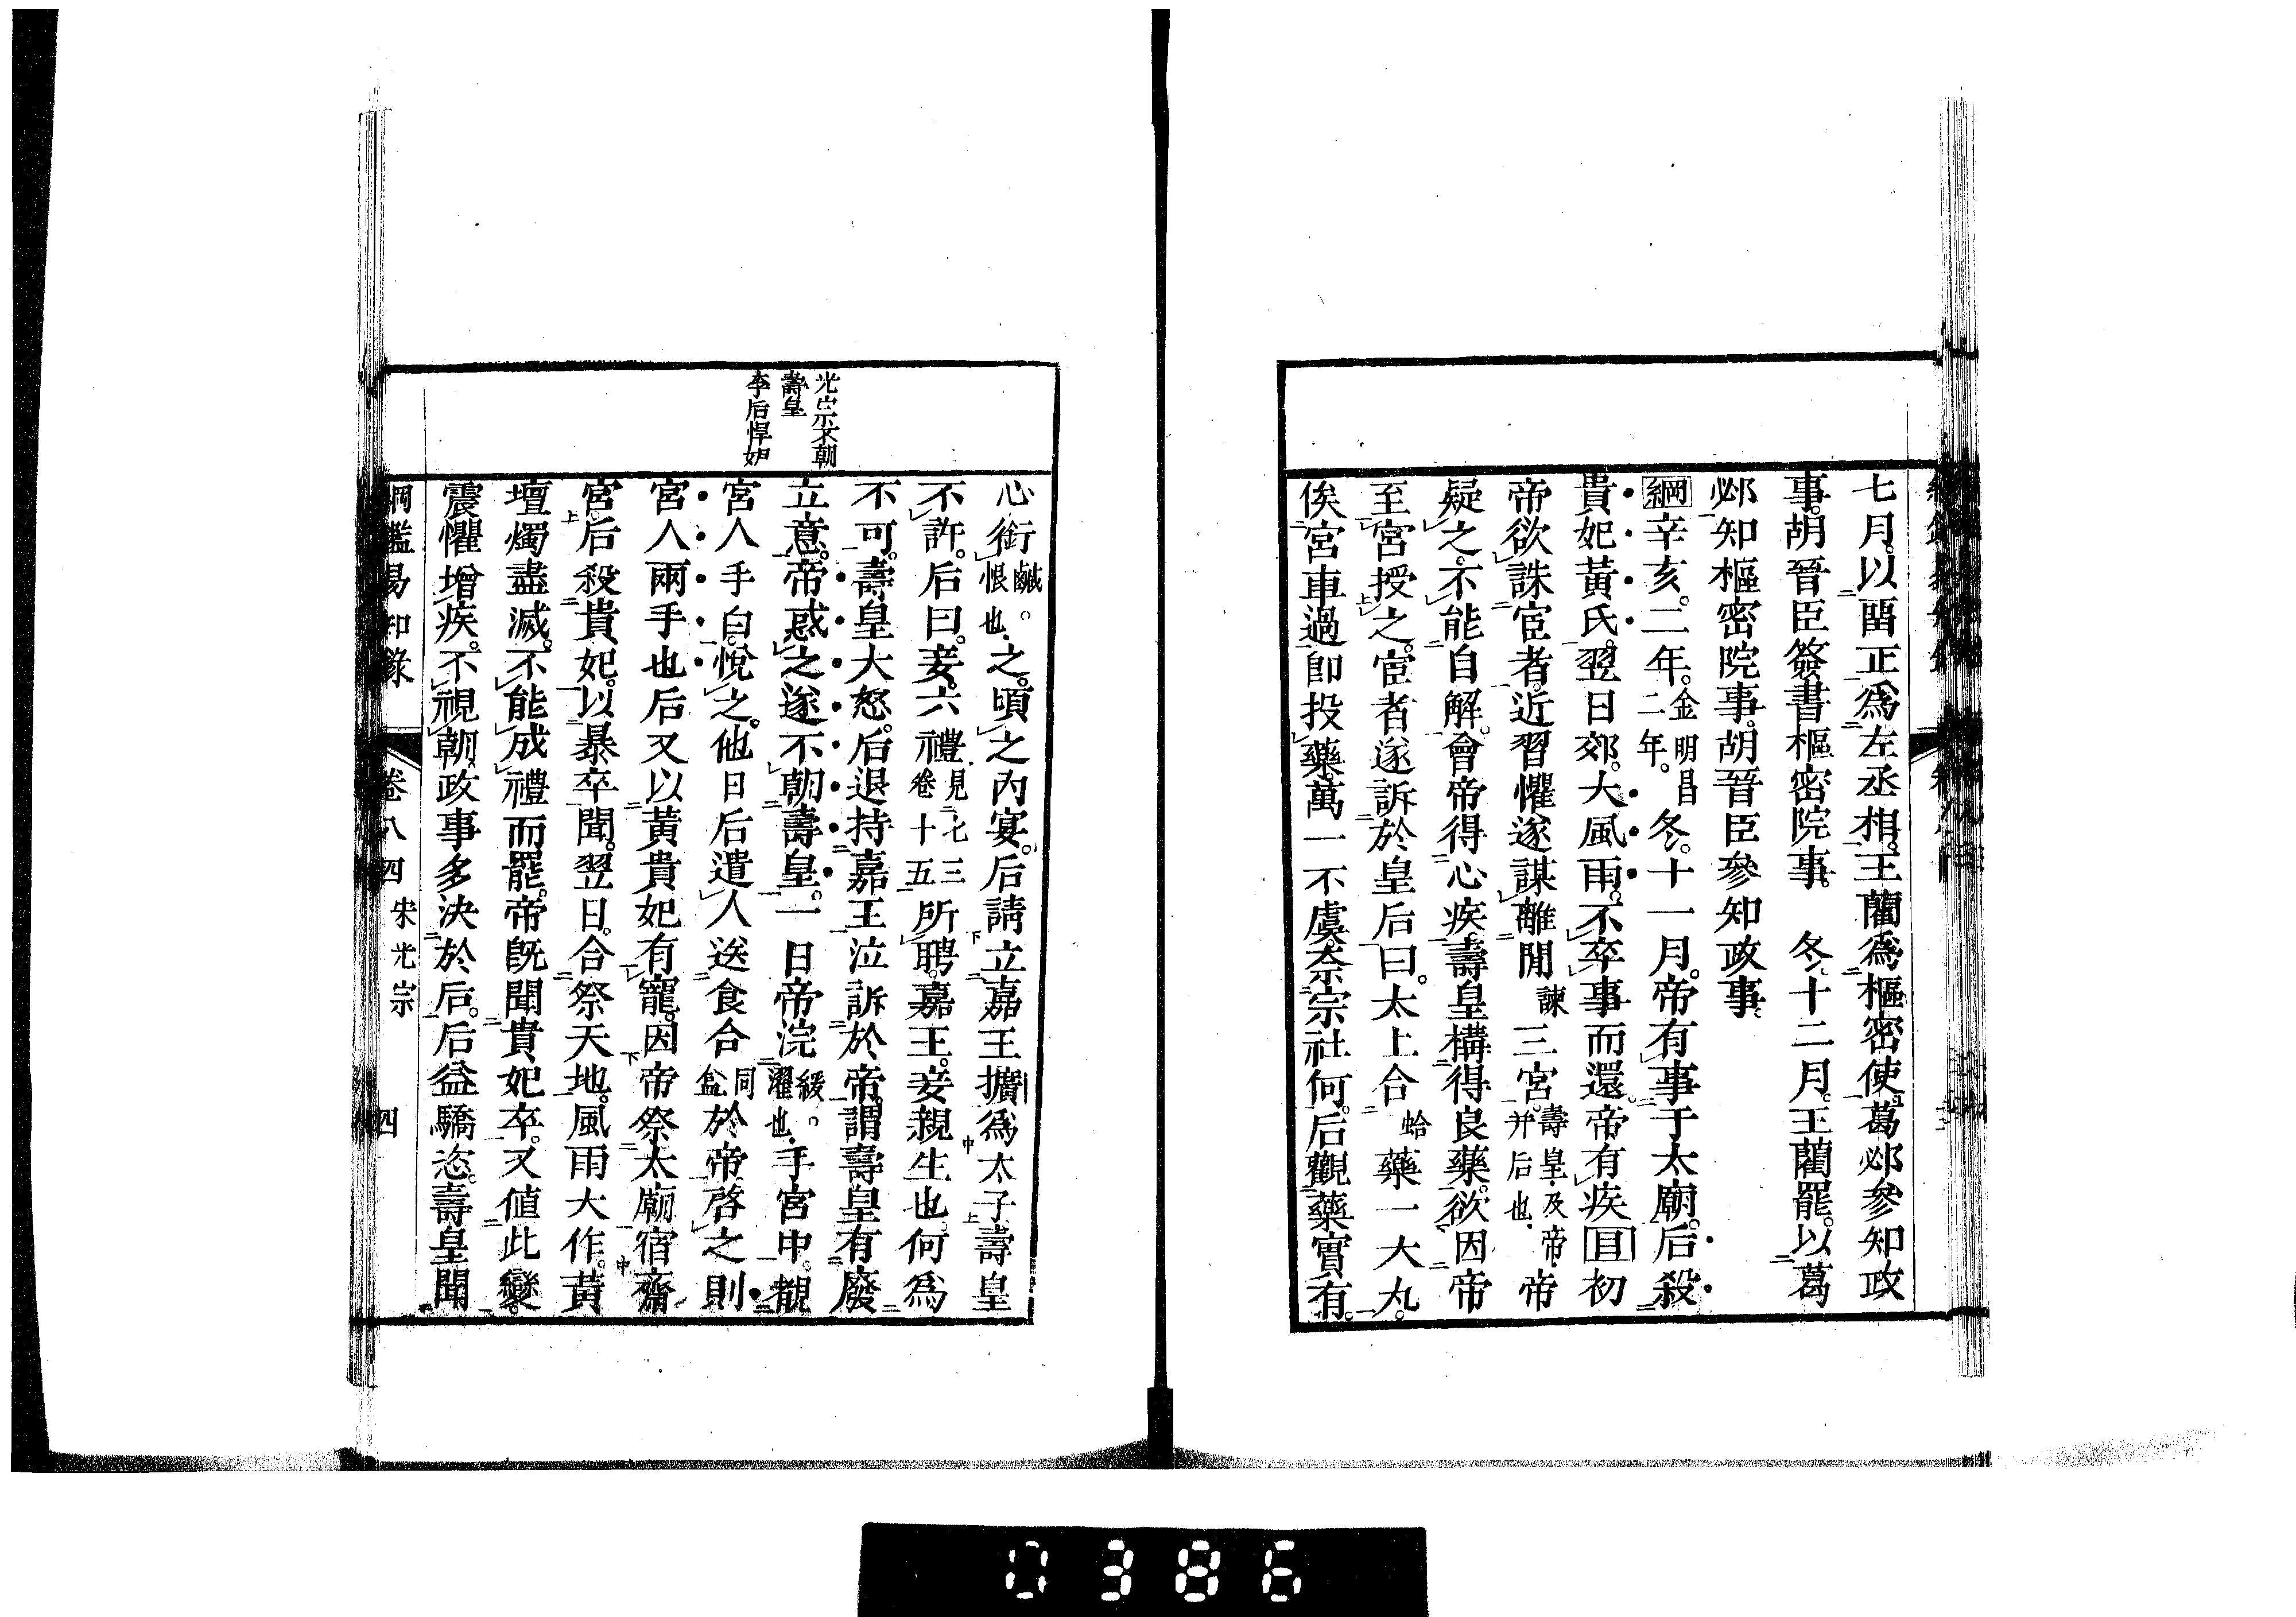 七月。以畱正爲左丞相。王藺爲樞密使。葛邲參知政
事。胡晉臣簽書樞密院事。　冬十二月。王藺罷。以葛
邲知樞密院事。胡晉臣參知政事。
綱辛亥。二年。金明昌二年。冬。十一月。帝有事于太廟。后殺
貴妃黃氏。翌日郊。大風雨。不卒事而還。帝有疾目初
帝欲誅宦者。近習懼。遂謀離閒諫三宮。壽皇及帝并后也。帝
疑之。不能自解。會帝得心疾。壽皇構得良藥。欲因帝
至宮授之。宦者遂訴於皇后曰。太上合蛤藥一大丸。
俟宮車過卽投藥。萬一不虞。奈宗社何。后觀藥實有。
光宗不朝
壽皇
李后悍妒
心銜鹹。恨也。之。頃之內宴。后請立嘉王擴爲太子。壽皇
不許。后曰。妾六禮見七三卷十五所聘。嘉王。妾親生也。何爲
不可。壽皇大怒。后退持嘉王泣訴於帝。謂壽皇有廢
立意。帝惑之。遂不朝壽皇。一日帝浣緩。濯也。手宮中。覩
宮人手白。悅之。他日后遣人送食合同盒於帝。啓之則
宮人兩手也。后又以黃貴妃有寵。因帝祭太廟宿齋
宮。后殺貴妃。以暴卒聞。翌日。合祭天地。風雨大作。黃
壇燭盡滅。不能成禮而罷。帝旣聞貴妃卒。又値此變。
震懼增疾。不視朝。政事多決於后。后益驕恣。壽皇聞
綱鑑易知錄　卷八四　宋光宗　四
0386